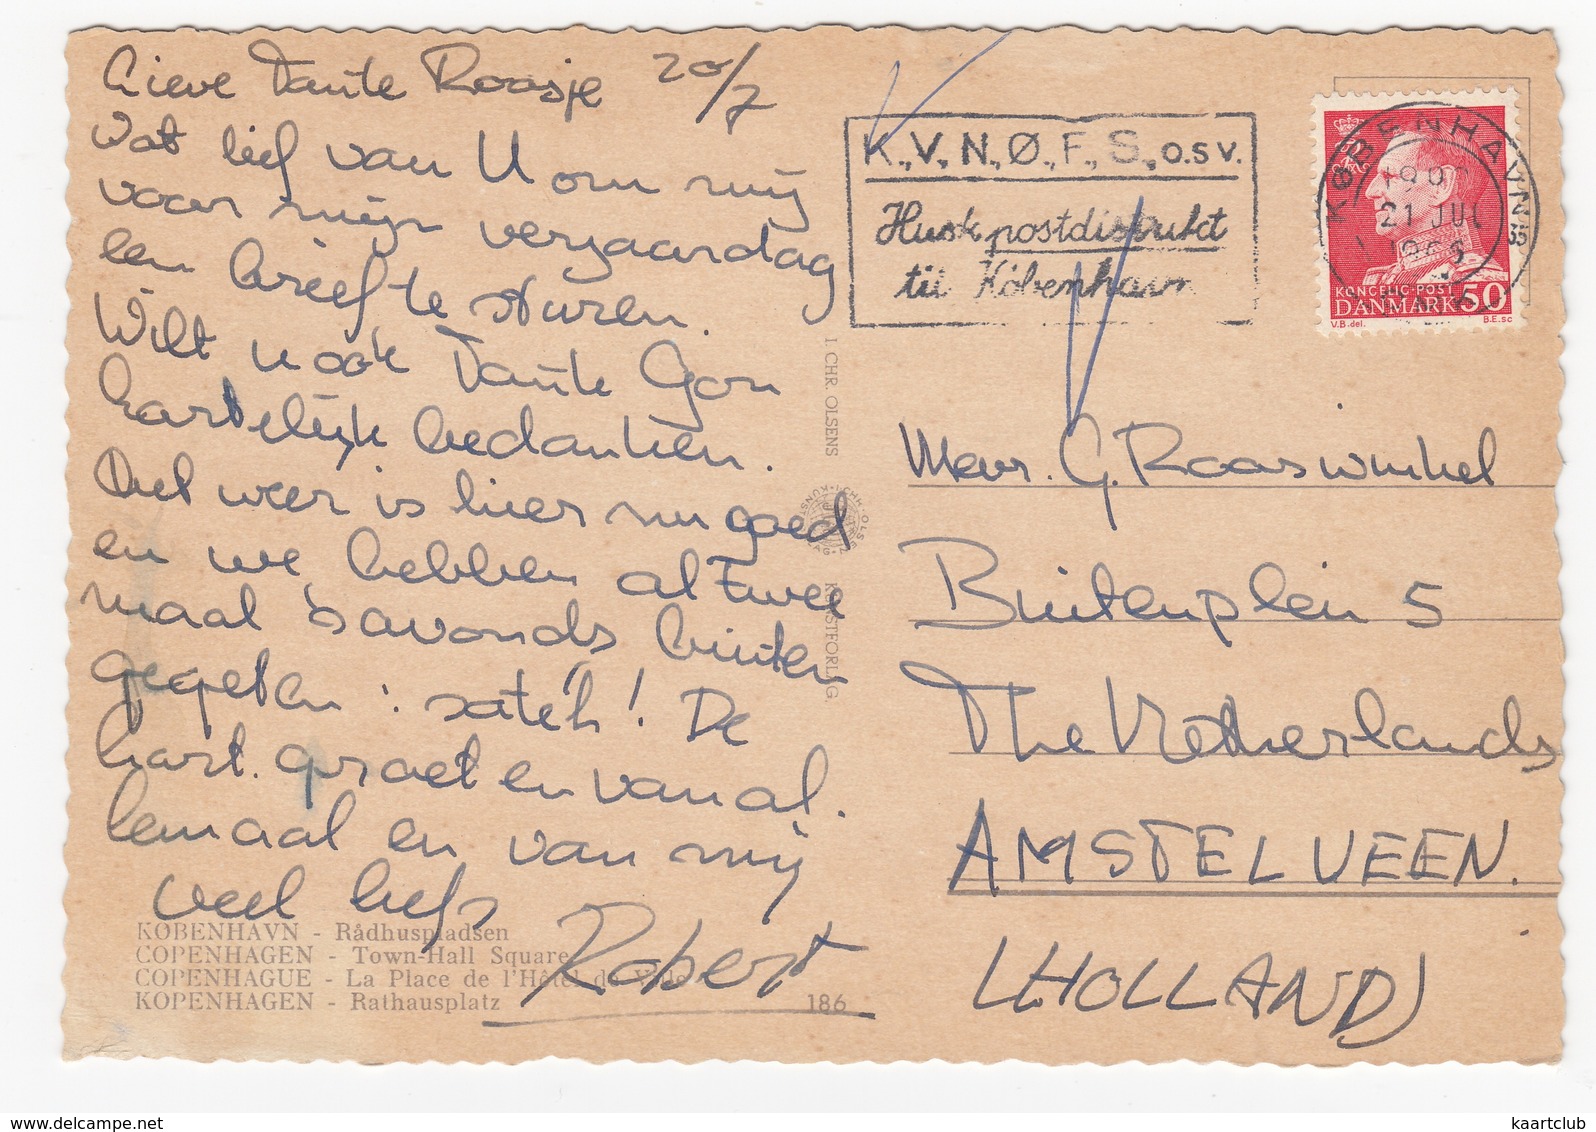 Lieve Tante Roosje 20/7
Wat lief van U om mij
voor mijn verjaardag
een brief te sturen.
Wilt u ook Tante Gon
hartelijk bedanken.
Het weer is hier nu goed
en we hebben al twee
maal 's avonds buiten
gegeten : satéh! De
hart. groeten van al.
lemaal en van mij
veel liefs
Robert
KØBENHAVN - Rådhuspladsen
COPENHAGEN - Town-Hall Square
COPENHAGUE - La Place de l'Hôtel de Ville
KOPENHAGEN - Rathausplatz
186
I. CHR. OLSENS
KUNSTFORLAG.
K., V., N., Ø., F., S., o.s.v.
Husk postdistrikt
til København
KØBENHAVN
21 JUL
KONGELIG · POST
DANMARK 50
V.B. del. B.E. sc
Mevr. G. Rooswinkel
Buitenplein 5
The Netherlands
AMSTELVEEN.
(HOLLAND)
www.delcampe.net
kaartclub